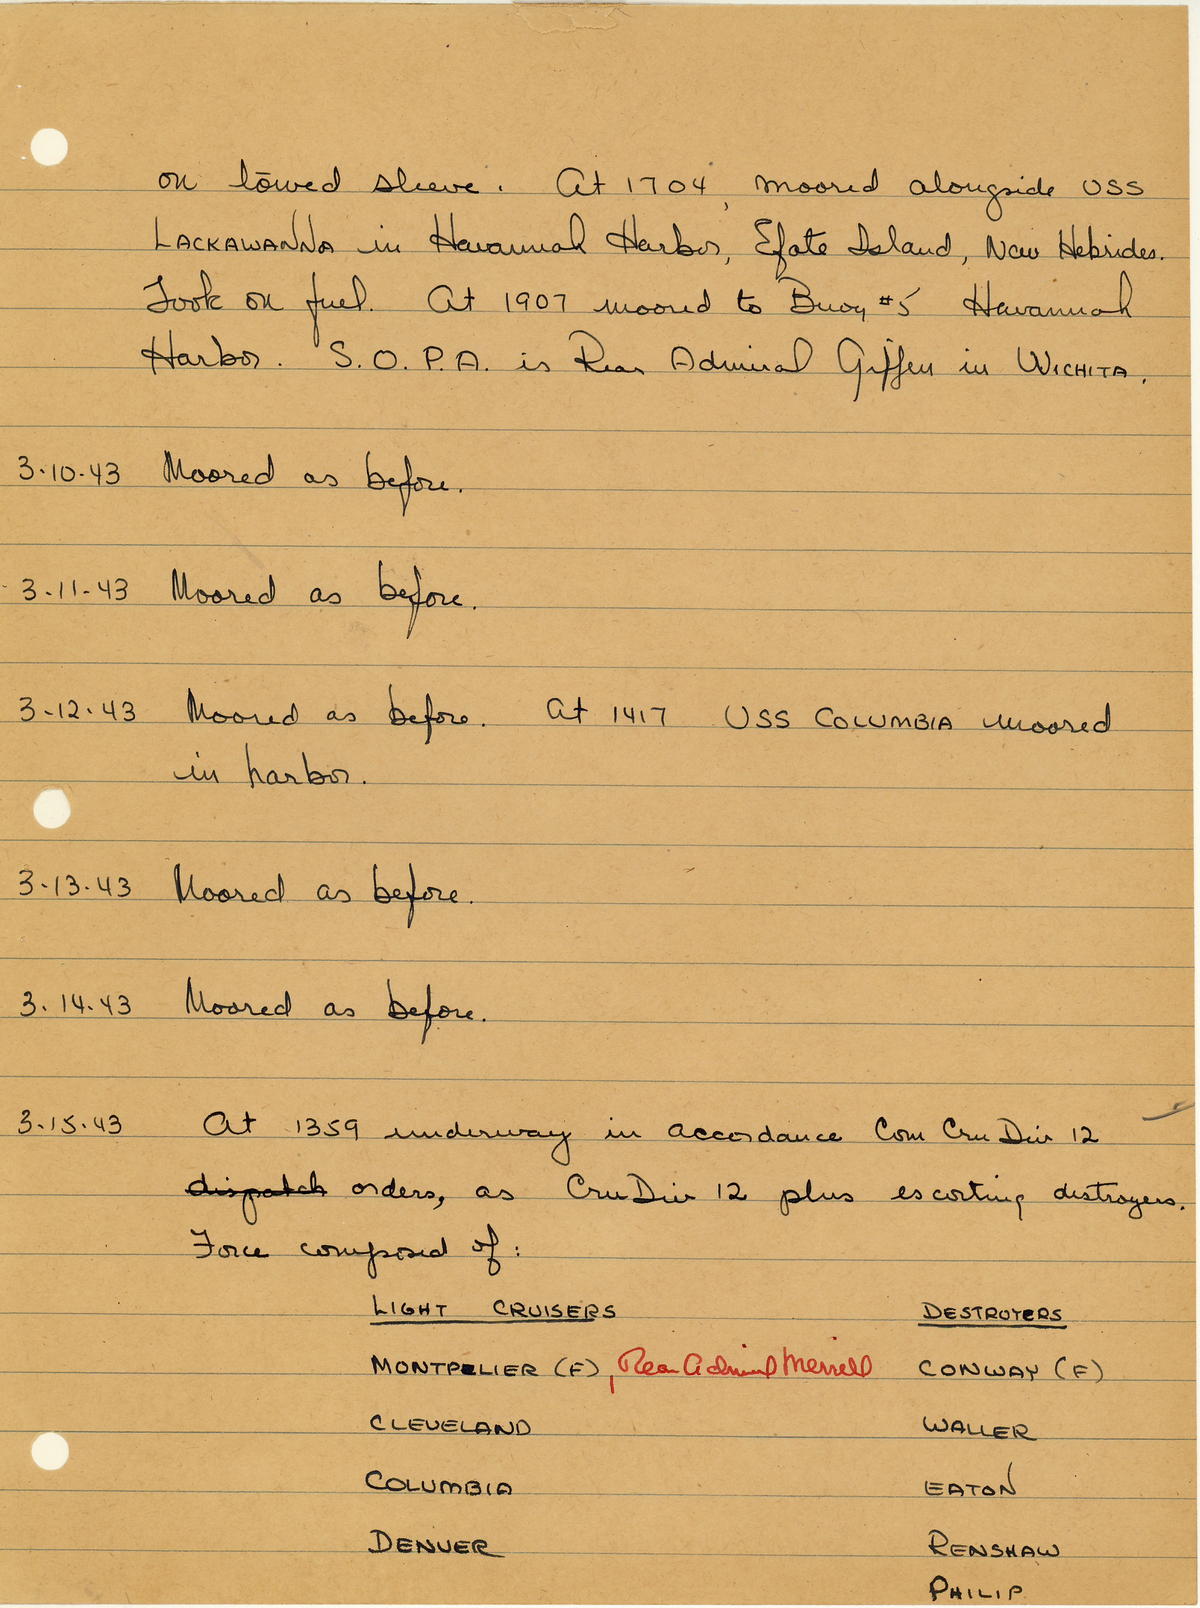 on towed sleeve. At 1704, moored alongside USS
LACKAWANNA in Havannah Harbor, Efate Island, New Hebrides.
Took on fuel. At 1907 moored to Buoy #5 Havannah
Harbor. S.O.P.A. is Rear Admiral Giffen in WICHITA.
3-10-43 Moored as before.
3-11-43 Moored as before.
3-12-43 Moored as before. At 1417 USS COLUMBIA moored
in harbor.
3-13-43 Moored as before.
3-14-43 Moored as before.
3-15-43 At 1359 underway in accordance Com Cru Div 12
dispatch orders, as CruDiv 12 plus escorting destroyers.
Force composed of:
LIGHT CRUISERS DESTROYERS
MONTPELIER (F), Rear Admiral Merrill CONWAY (F)
CLEVELAND WALLER
COLUMBIA EATON
DENVER RENSHAW
PHILIP